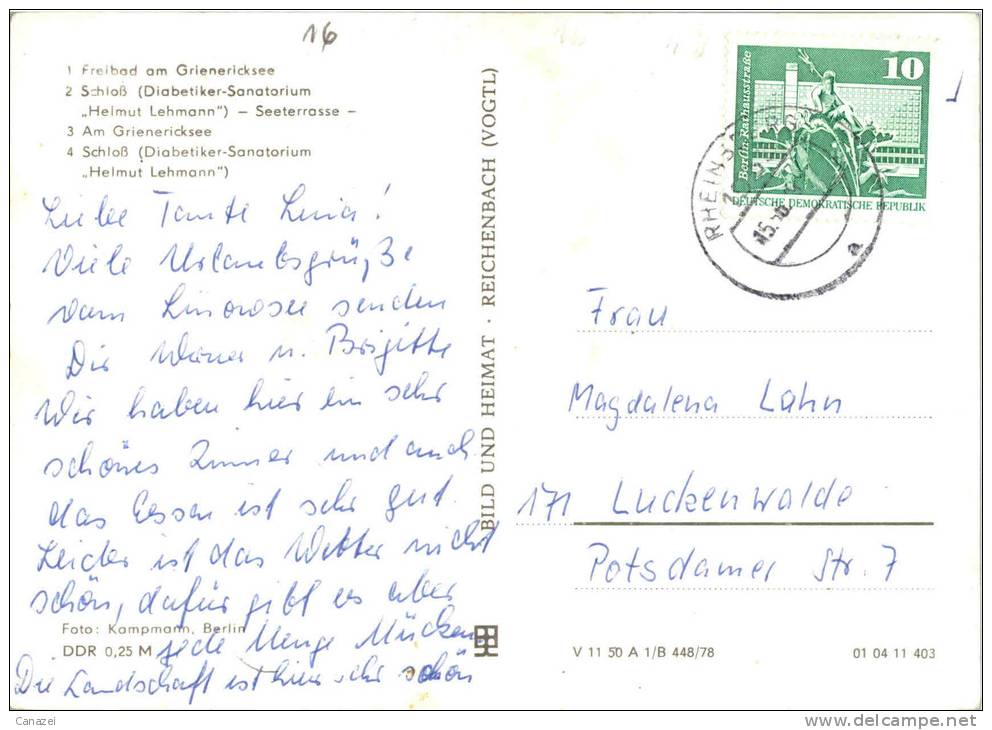 16
1 Freibad am Grienericksee
2 Schloß (Diabetiker-Sanatorium
„Helmut Lehmann") – Seeterrasse –
3 Am Grienericksee
4 Schloß (Diabetiker-Sanatorium
„Helmut Lehmann")
Liebe Tante Lena!
Viele Urlaubsgrüße
vom senden
Dir Werner u. Brigitte
Wir haben hier ein sehr
schönes Zimmer und auch
das Essen ist sehr gut.
Leider ist das Wetter nicht
schön, dafür gibt es aber
jede Menge Mücken.
Die Landschaft ist hier sehr schön
Foto: Kampmann, Berlin
DDR 0,25 M
BILD UND HEIMAT · REICHENBACH (VOGTL)
Berlin, Rathausstraße
10
DEUTSCHE DEMOKRATISCHE REPUBLIK
RHEINSBERG
a
Frau
Magdalena Lahn
171 Luckenwalde
Potsdamer Str. 7
V 11 50 A 1/B 448/78
01 04 11 403
Canazei
www.delcampe.net